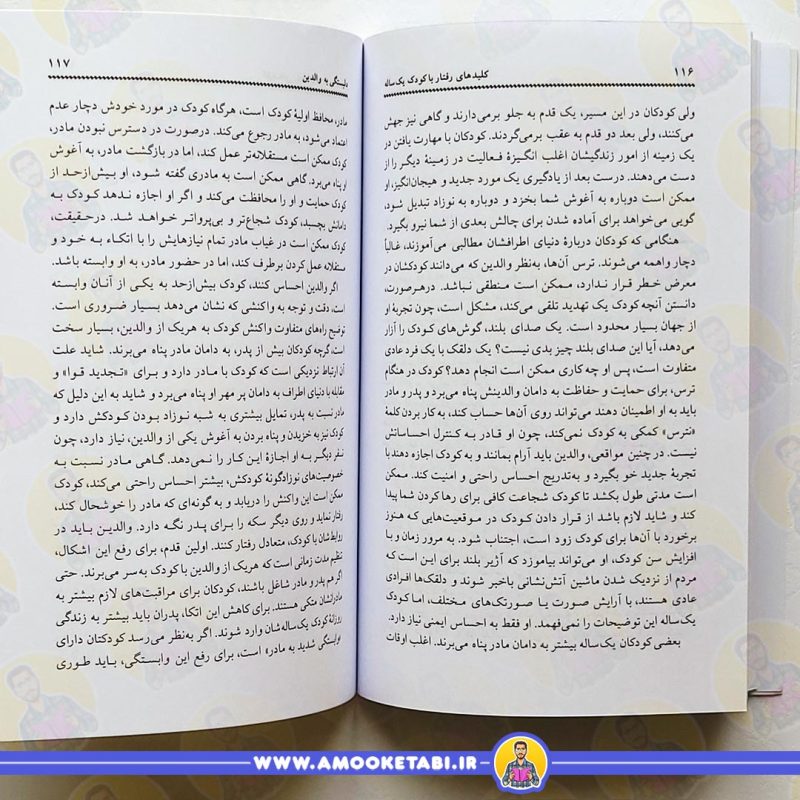 ۱۱۶
کلیدهای رفتار با کودک یک‌ساله
ولی کودکان در این مسیر، یک قدم به جلو برمی‌دارند و گاهی نیز جهش
می‌کنند، ولی بعد دو قدم به عقب برمی‌گردند. کودکان با مهارت یافتن در
یک زمینه از امور زندگیشان اغلب انگیزهٔ فعالیت در زمینهٔ دیگر را از
دست می‌دهند. درست بعد از یادگیری یک مورد جدید و هیجان‌انگیز، او
ممکن است دوباره به آغوش شما بخزد و دوباره به نوزاد تبدیل شود،
گویی می‌خواهد برای آماده شدن برای چالش بعدی از شما نیرو بگیرد.
هنگامی که کودکان دربارهٔ دنیای اطرافشان مطالبی می‌آموزند، غالباً
دچار واهمه می‌شوند. ترس آن‌ها، به‌نظر والدین که می‌دانند کودکشان در
معرض خطر قرار ندارد، ممکن است منطقی نباشد. درهرصورت،
دانستن آنچه کودک یک تهدید تلقی می‌کند، مشکل است، چون تجربهٔ او
از جهان بسیار محدود است. یک صدای بلند، گوش‌های کودک را آزار
می‌دهد، آیا این صدای بلند چیز بدی نیست؟ یک دلقک با یک فرد عادی
متفاوت است، پس او چه کاری ممکن است انجام دهد؟ کودک در هنگام
ترس، برای حمایت و حفاظت به دامان والدینش پناه می‌برد و پدر و مادر
باید به او اطمینان دهند می‌تواند روی آن‌ها حساب کند، به کار بردن کلمهٔ
«نترس» کمکی به کودک نمی‌کند، چون او قادر به کنترل احساساتش
نیست. در چنین مواقعی، والدین باید آرام بمانند و به کودک اجازه دهند با
تجربهٔ جدید خو بگیرد و به‌تدریج احساس راحتی و امنیت کند. ممکن
است مدتی طول بکشد تا کودک شجاعت کافی برای رها کردن شما پیدا
کند و شاید لازم باشد از قرار دادن کودک در موقعیت‌هایی که هنوز
برخورد با آن‌ها برای کودک زود است، اجتناب شود. به مرور زمان و با
افزایش سن کودک، او می‌تواند بیاموزد که آژیر بلند برای این است که
مردم از نزدیک شدن ماشین آتش‌نشانی باخبر شوند و دلقک‌ها افرادی
عادی هستند، با آرایش صورت یا صورتک‌های مختلف، اما کودک
یک‌ساله این توضیحات را نمی‌فهمد. او فقط به احساس ایمنی نیاز دارد.
بعضی کودکان یک‌ساله بیشتر به دامان مادر پناه می‌برند. اغلب اوقات
وابستگی به والدین
۱۱۷
مادر، محافظ اولیهٔ کودک است، هرگاه کودک در مورد خودش دچار عدم
اعتماد می‌شود، به مادر رجوع می‌کند. درصورت در دسترس نبودن مادر،
کودک ممکن است مستقلانه‌تر عمل کند، اما در بازگشت مادر، به آغوش
او پناه می‌برد. گاهی ممکن است به مادری گفته شود، او بیش‌ازحد از
کودک حمایت و او را محافظت می‌کند و اگر او اجازه ندهد کودک به
دامانش بچسبد، کودک شجاع‌تر و بی‌پرواتر خواهد شد. درحقیقت،
کودک ممکن است در غیاب مادر تمام نیازهایش را با اتکاء به خود و
مستقلانه عمل کردن برطرف کند، اما در حضور مادر، به او وابسته باشد.
اگر والدین احساس کنند، کودک بیش‌ازحد به یکی از آنان وابسته
است، دقت و توجه به واکنشی که نشان می‌دهد بسیار ضروری است.
توضیح راه‌های متفاوت واکنش کودک به هریک از والدین، بسیار سخت
است، گرچه کودکان بیش از پدر، به دامان مادر پناه می‌برند. شاید علت
آن ارتباط نزدیکی است که کودک با مادر دارد و برای «تجدید قوا» و
مقابله با دنیای اطراف به دامان پر مهر او پناه می‌برد و شاید به این دلیل که
مادر نسبت به پدر، تمایل بیشتری به شبه نوزاد بودن کودکش دارد و
کودک نیز به خزیدن و پناه بردن به آغوش یکی از والدین، نیاز دارد، چون
نفر دیگر به او اجازهٔ این کار را نمی‌دهد. گاهی مادر نسبت به
خصوصیت‌های نوزادگونهٔ کودکش، بیشتر احساس راحتی می‌کند، کودک
ممکن است این واکنش را دریابد و به گونه‌ای که مادر را خوشحال کند،
رفتار نماید و روی دیگر سکه را برای پدر نگه دارد. والدین باید در
روابطشان با کودک، متعادل رفتار کنند. اولین قدم، برای رفع این اشکال،
تنظیم مدت زمانی است که هریک از والدین با کودک به‌سر می‌برند. حتی
اگر هم پدر و مادر شاغل باشند، کودکان برای مراقبت‌های لازم بیشتر به
مادرانشان متکی هستند. برای کاهش این اتکا، پدران باید بیشتر به زندگی
روزانهٔ کودک یک‌ساله‌شان وارد شوند. اگر به‌نظر می‌رسد کودکتان دارای
«وابستگی شدید به مادر» است، برای رفع این وابستگی، باید طوری
WWW.AMOOKETABI.IR